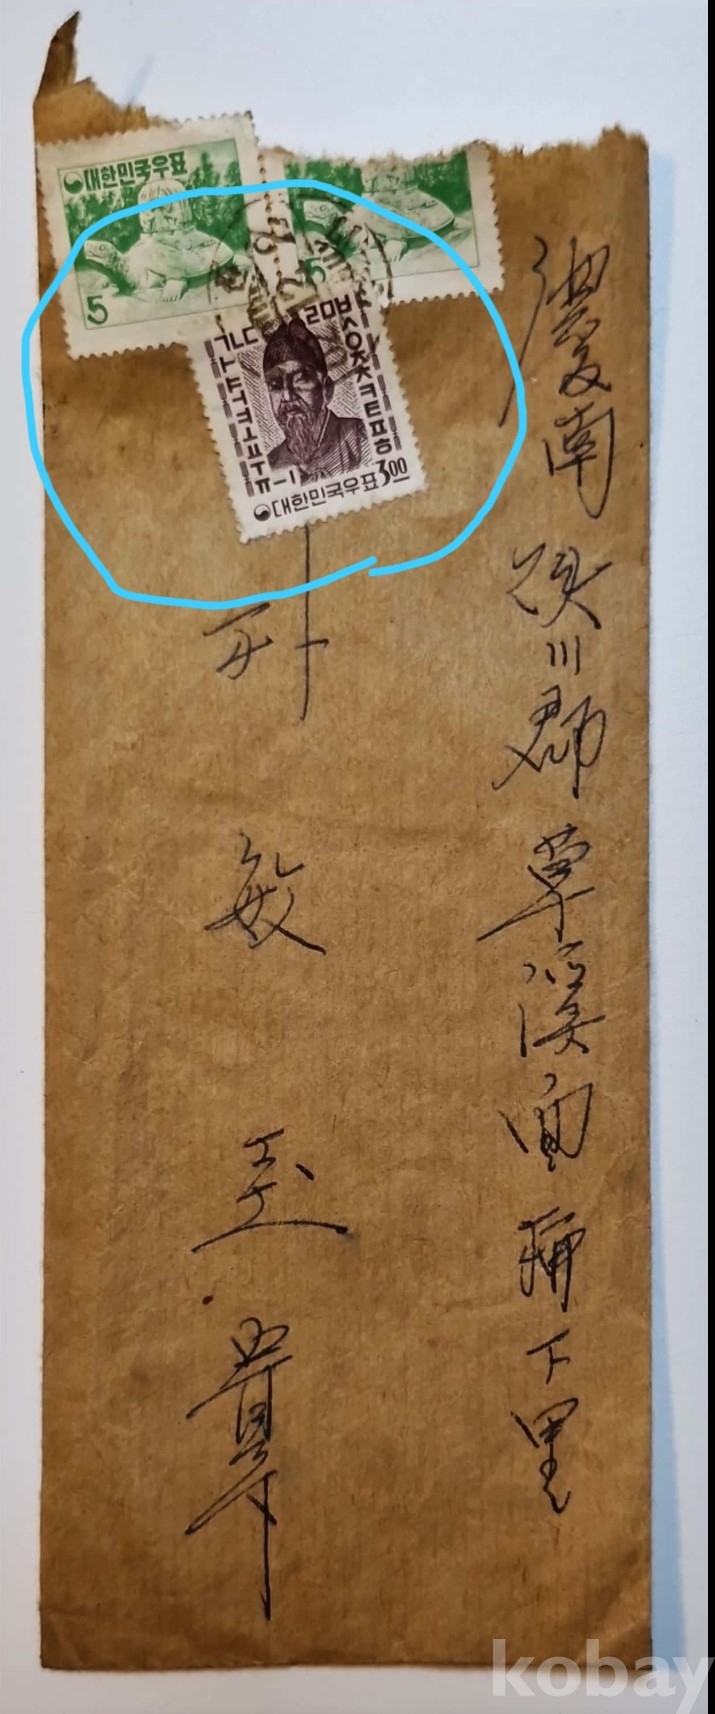 대한민국우표
5
5
ㄱㄴㄷㄹㅁㅂㅅㅇㅈㅊㅋㅌㅍㅎ
ㅏㅑㅓㅕㅗㅛㅜㅠㅡㅣ
대한민국우표 3.00
慶南 陜川郡 草溪面 下里
敏 玉 貴下
kobay